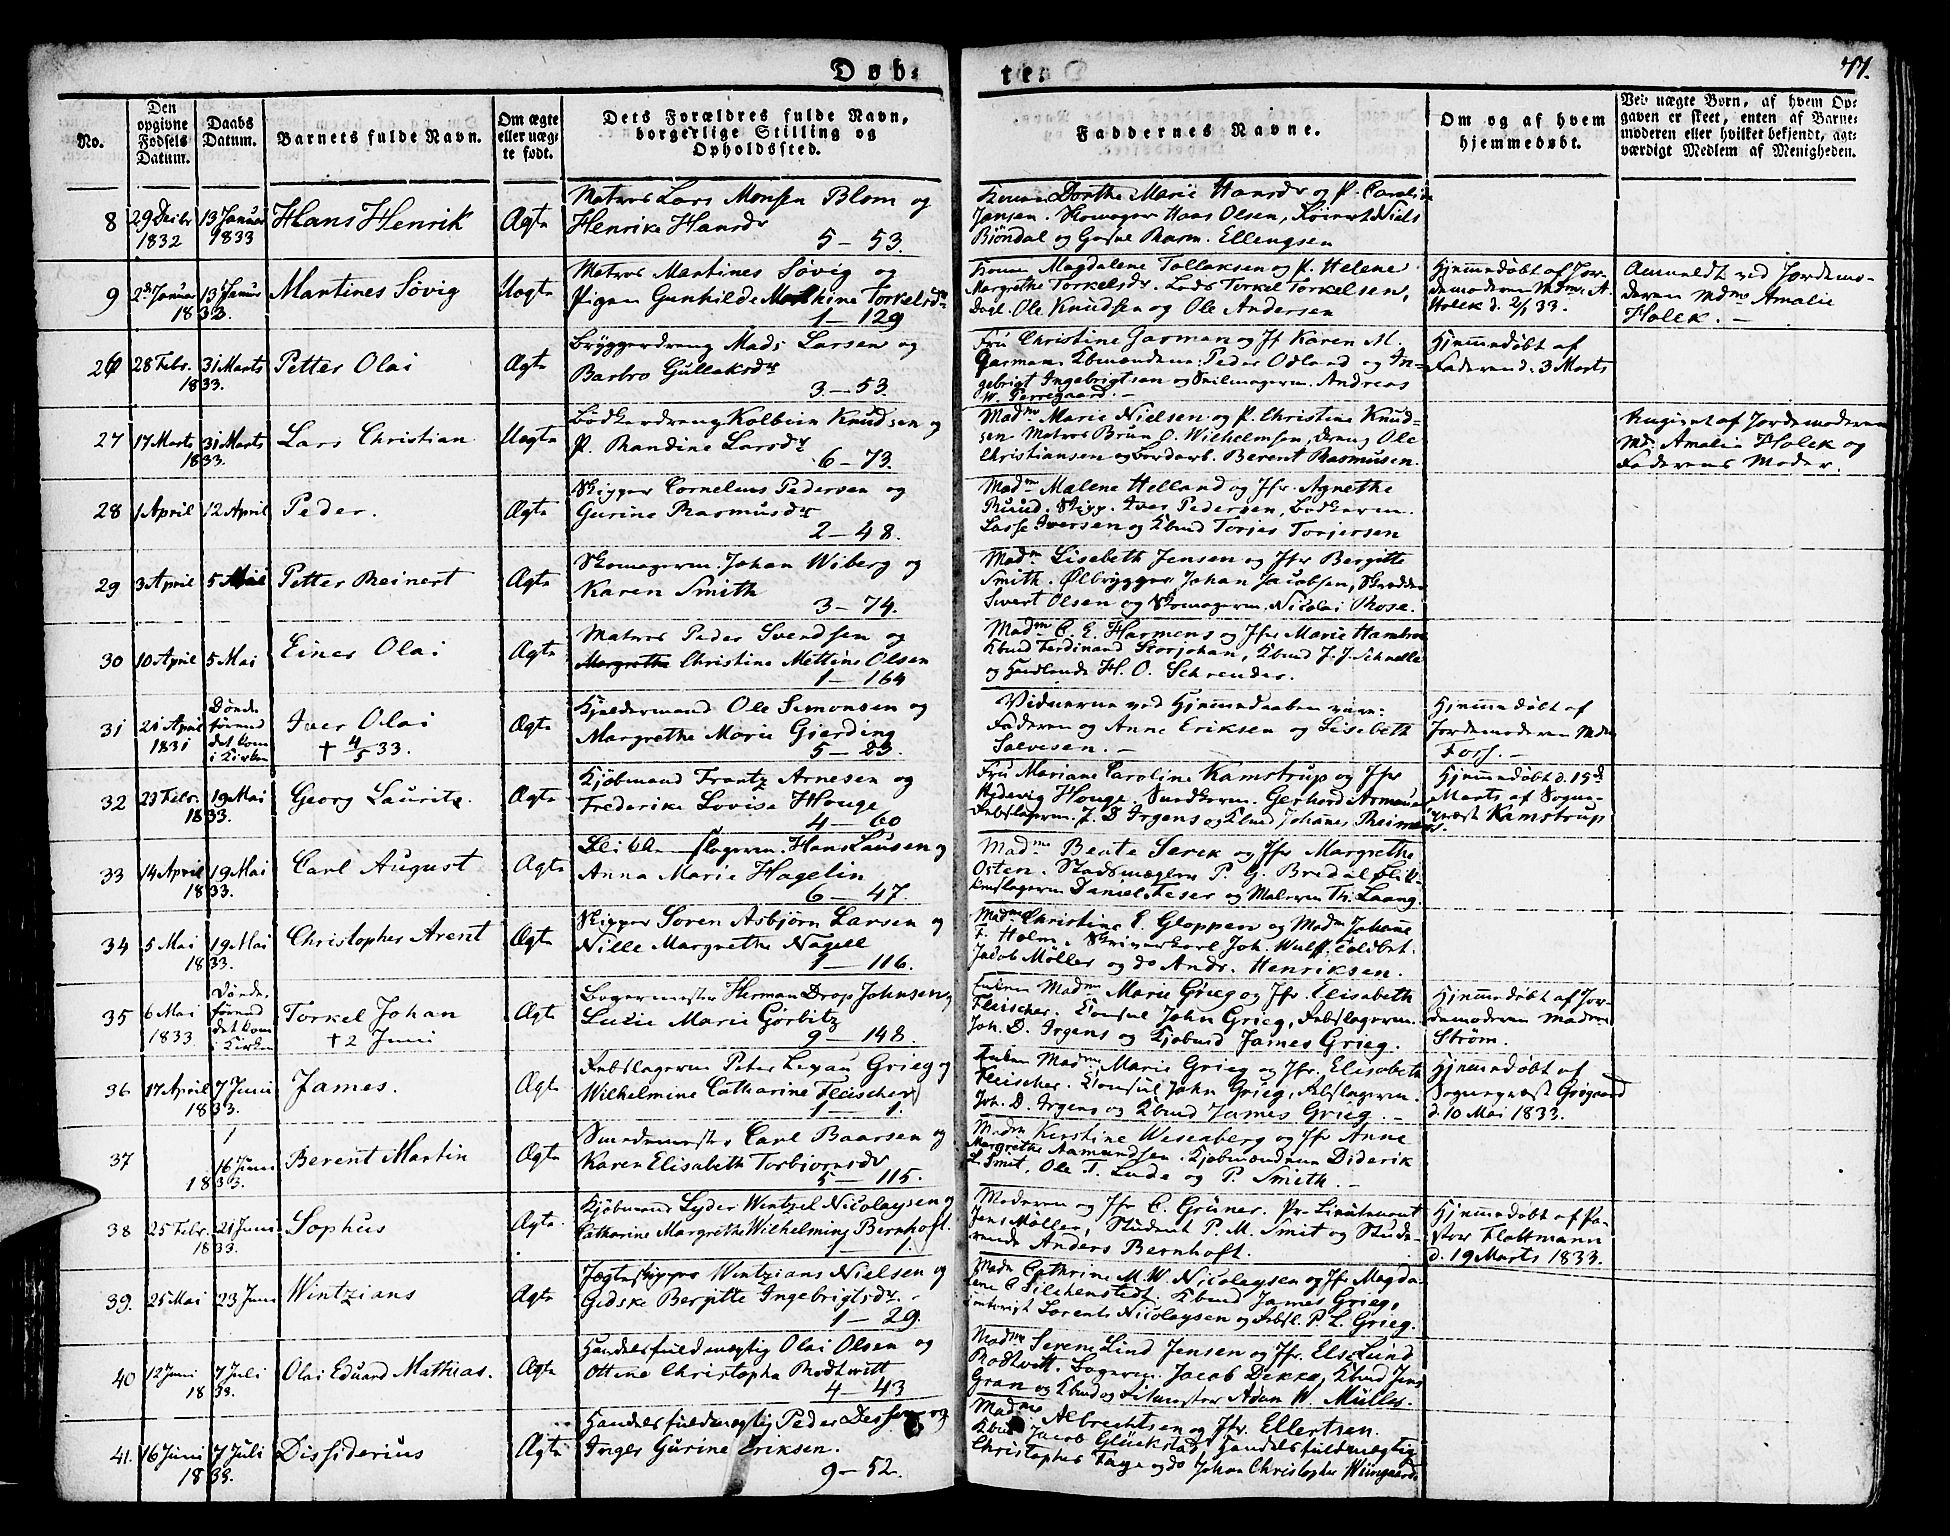 Døb:
te.
77.
No.
Den opgivne Fødsels Datum.
Daabs Datum.
Barnets fulde Navn.
Om ægte eller uæg- te født.
Dets Forældres fulde Navn, borgerlige Stilling og Opholdssted.
Faddernes Navne.
Om og af hvem hjemmedøbt.
Ved uægte Børn, af hvem Op- gaven er skeet, enten af Barne- moderen eller hvilket bekjendt, agt- værdigt Medlem af Menigheden.
8 29 Decbr 1832 13 Januar 1833 Hans Henrik Ægte
Matros Lars Monsen Blom og
Henrike Hansdr
5 – 53.
Konen Dorthe Marie Hansdr og P. Caroline
Jansen. Skomager Hans Olsen, Niels
Bjöndal og Rasm. Ellengsen
9 2d Januar 13 Januar 1833. Martines Søvig Uægte
Matros Martines Søvig og
Pigen Gunhilde Torkelsdr
1 – 129
Konen Magdalene Tollaksen og P. Helene
Margrethe Torkelsdr. Lods Torkel Torkelsen,
Ole Knudsen og Ole Andersen
Hjemmedøbt af Jor-
demoderen Mdme A.
Holck d. 2/1 33.
Anmeldt ved Jordemo-
deren Mdme Amalie
Holck. –
26 28 Febr. 31 Marts 1833. Petter Olai Ægte
Bryggerdreng Mads Larsen og
Barbro Gullaksdr
3 – 53.
Fru Christine Garman og Jf Karen M.
Garman. Kbmændene Peder Odland og In-
gebrigt Ingebrigtsen og Seilmagerm. Andreas
W. Ferregaard. –
Hjemmedøbt af
Faderen d. 3 Marts
27 17 Marts 31 Marts 1833. Lars Christian Uægte
Bödkerdreng Kolbein Knudsen og
P. Randine Larsdr
6 – 73.
Madme Marie Nielsen og P. Christine Knud-
sen Matros Brun O. Wilhelmsen, dreng Ole
Christiansen og Berent Rasmusen.
Angivet af Jordemoderen
Md. Amalie Holck og
Faderens Moder.
28 1 April 12 April Peder. Ægte
Skipper Cornelius Pedersen og
Gurine Rasmusdr
2 – 48.
Madme Malene Helland og Jfr. Agnethe
Ruud. Skipp. Iver Pedersen, Bödkerm.
Lasse Iversen og Kbmd Torjes Torjersen
29 3 April 5 Mai Petter Reinert Ægte
Skomagerm. Johan Wiberg og
Karen Smith
3 – 74.
Madm Lisebeth Jensen og Jfr Bergitte
Smith. Ølbrygger Johan Jacobsen, Skrædder
Sivert Olsen og Skomagerm. Nicolai Rose.
30 10 April 5 Mai Einer Olai Ægte
Matros Peder Svendsen og
Margrethe Christine Mettine Olsen
1 – 164
Madm C. E. Harmens og Jfr Marie Hambro
Kbmd Ferdinand Storjohan, Kbmd J. J. Schnelle
og H. O. Schreuder.
31 21 April 1831 Døde førend det kom i Kirken Iver Olai
† 4/5 33.
Ægte
Kjeldermand Ole Simonsen og
Margrethe Marie Gierding
5 – 23.
Vidnerne ved Hjemmedaaben vare:
Faderen og Anne Eriksen og Lisebeth
Salvesen. –
Hjemmedøbt af
Jordemoderen Mdm
Foss. –
32 23 Febr. 19 Mai 1833. Georg Lauritz. Ægte
Kjöbmand Frantz Arnesen og
Frederike Lovise Houge
4 – 60
Fru Mariane Caroline Kamstrup og Jfr
Hedevig Houge. Snedkerm. Gerhard
Rebslagerm. J. D. Irgens og Kbmd Johannes Reimers
Hjemmedøbt d. 15d
Marts af Sogne-
præst Kamstrup
33 14 April 19 Mai 1833. Carl August Ægte
Blikkenslagerm. Hans Lausen og
Anna Marie Hagelin
6 – 47.
Madme Beate Serck og Jfr Margrethe
Osten. Stadsmægler P. G. Bredal Blik-
kenslagerm Daniel Feser og Malerm Th. Laang.
34 5 Mai 19 Mai 1833. Christopher Arent Ægte
Skipper Søren Asbjørn Larsen og
Nille Margrethe Nagell
1 – 116.
Madme Christine E. Gloppen og Madm Johanne
F. Holm. Skriverkarl Joh. Wulff. Edlibet.
Jacob Møller og do Andr. Henriksen.
35 6 Mai 1833 Døde førend det kom i Kirken Torkel Johan
† 2 Juni
Ægte
Bagermester Herman Drop Johnsen,
Lucie Marie Görbitz
9 – 148.
Enken Madm Marie Grieg og Jfr. Elisabeth
Fleischer. Consul John Grieg, Rebslagerm.
Joh. D. Irgens og Kjöbmd James Grieg.
Hjemmedøbt af Jor-
demoderen Madme
Strøm.
36 17 April 7 Juni 1833. James. Ægte
Rebslagerm Peter Lexau Grieg og
Wilhelmine Catharine Fleischer
1 – 1.
Enken Madm Marie Grieg og Jfr. Elisabeth
Fleischer. Consul John Grieg, Rebslagerm.
Joh. D. Irgens og Kbmd James Grieg. –
Hjemmedøbt af
Sognepræst Grøgaard
d. 10 Mai 1833.
37 1 16 Juni 1833. Berent Martin Ægte
Smedemester Carl Baarsen og
Karen Elisabeth Torbiornsdr
5 – 115.
Madm Kirstine Wesenberg og Jfr Anne
Margrethe Aamundsen. Kjøbmændene Diderik
L. Smit, Ole T. Lude og P. Smith. –
38 25 Febr. 21 Juni 1833. Sophus Ægte.
Kjöbmand Lyder Wentzel Nicolaysen og
Catharine Margrethe Wilhelmine Bernhoft.
1 – 1.
Moderen og Jfr C. Grüner. Pr. Lieutenant
Jens Møller, Student P. M. Smit og Stude-
rende Anders Bernhoft.
Hjemmedøbt af Pa-
stor Flottmann
d. 19 Marts 1833.
39. 25 Mai 23 Juni Wintzians Ægte
Jægteskipper Wintzians Nielsen og
Gidske Bergitte Ingebrigtsdr. –
1 – 29.
Madm Cathrine M. W. Nicolaysen og Jfr Magda-
lene C Silchenstedt. Kbmd James Grieg,
Lorents Nicolaysen og Rebsl. P. L. Grieg.
40 12 Juni 7 Juli 1833. Olai Eduard Mathias. Ægte
Handelsfuldmægtig Olai Olsen og
Ottine Christopha Rodtwitt
4 – 43
Madme Seren Lind Jensen og Jfr. Els Lund
Rodtwitt. Bagerm. Jacob Dekke, Kbmd Jens
Gran og Kbmd og Adam W. Müller.
41. 16 Juni 7 Juli 1833. Dissiderius Ægte
Handelsfuldmægtig Peder Dessen og
Inger Gurine Eriksen.
9 – 52.
Madme Albrechtsen og Jfr. Ellertsen.
Kbmd Jacob Glückstad, Handelsfuldmægtig
Christopher Faye og do Johan Christopher Wiingaard.